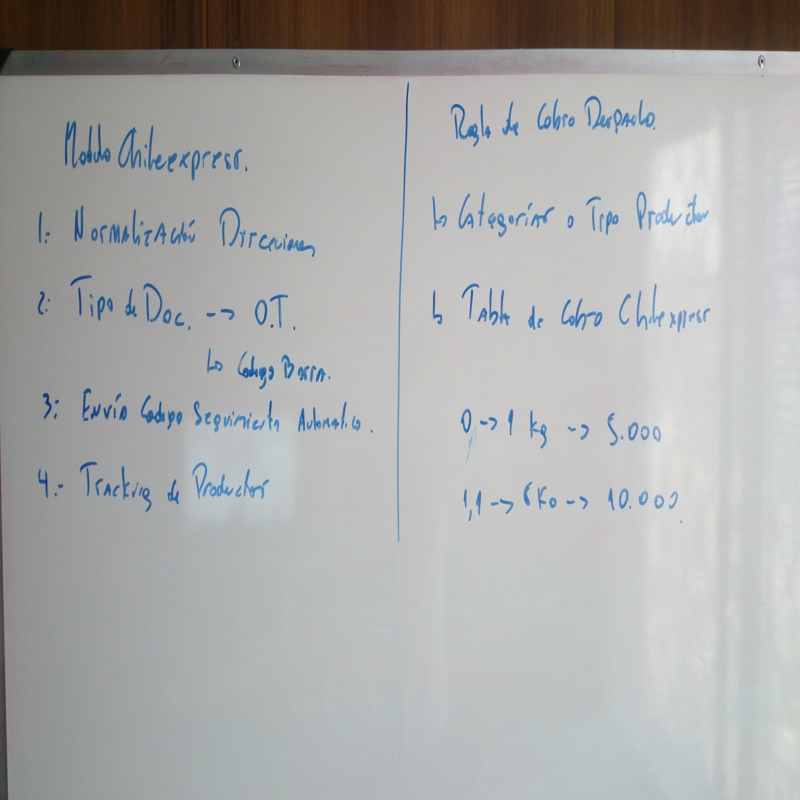 Modulo Chileexpress.
1.- Normalización Direcciones
2: Tipo de Doc. --> O.T.
↳ Codigo Barra.
3: Envío Codigo Seguimiento Automatico.
4.- Tracking de Productos
Regla de Cobro Despacho.
↳ Categorías o Tipo Productos
↳ Tabla de Cobro Chilexpress
0, -> 1 kg -> 5.000
1,1 -> 6 Ko -> 10.000.